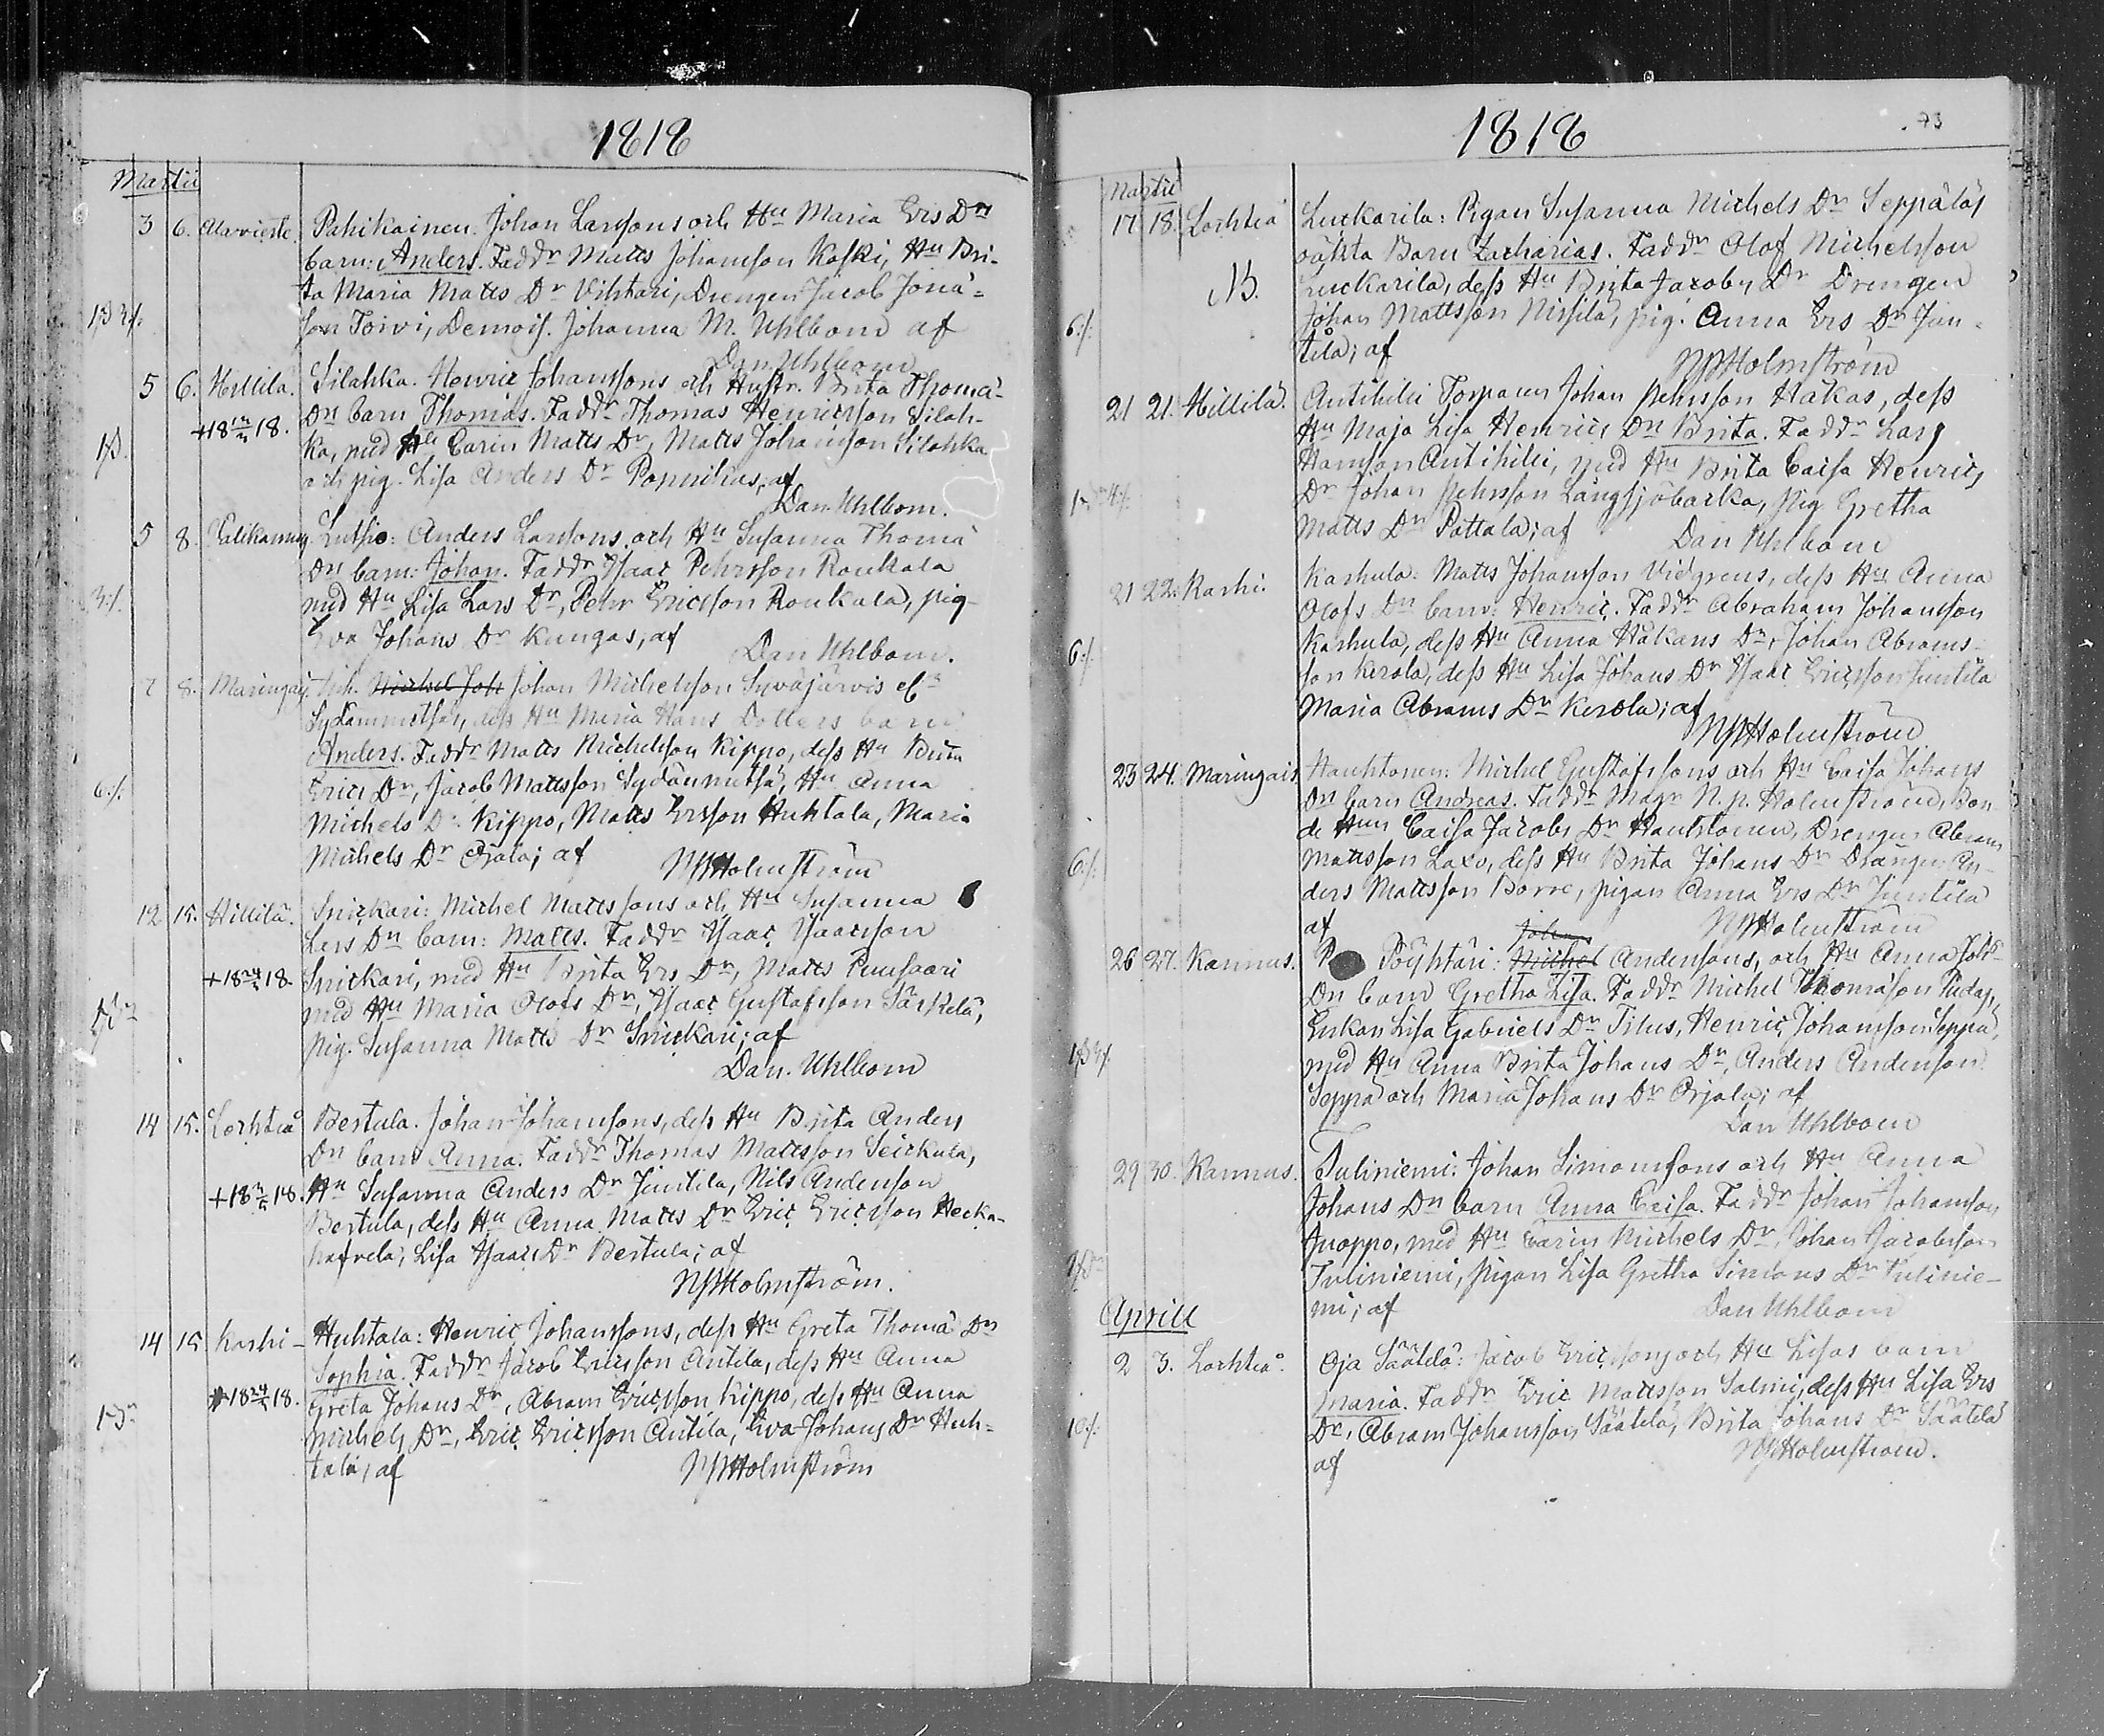 1818
Martii
3 6. Alavieste. Pahikainen. Johan Larssons och Hu Maria Ers Drs
barn: Anders. Faddr Matts Johansson Koski, Hu Bri-
ta Maria Matts Dr Vihtari, Drengen Jacob Jona-
son Toivi, Demois. Johanna M. Uhlbom af
Dan Uhlbom
5 6. Hillilä. Silahka. Henric Johanssons och Hustr. Brita Thomæ
+18 18. Drs barn Thomas. Faddr Thomas Henricsson Silah-
ka, med Hu Carin Matts Dr, Matts Johansson Silahka
och pig. Lisa Anders Dr af
Dan. Uhlbom.
5 8. Anders Larssons och Hu Susanna Thomæ
Drs barn: Johan. Faddr Isaac Pehrsson Roukala
3:/. med Hu Lisa Lars Dr, Pehr Ericsson Roukala, pig
Eva Johans Dr Kungas, af Dan Uhlbom.
7 8. Maringais Michel Joh Johan Michelsson Syväjärvis
dess Hu Maria Hans Dotters barn
Anders. Faddr Matts Michelsson Kippo, dess Hu Brita
6:/. Erics Dr, Jacob Mattsson Sydänmetsä, Hu Anna
Michels Dr Kippo, Matts Ersson Huhtala, Maria
Michels Dr Ojala; af NPHolmström
12 15. Hillilä. Snickari: Michel Mattssons och Hu Susanna
Lars Drs barn: Matts. Faddr Isaac Isaacsson
+18 18. Snickari, med Hu Brita Ers Dr, Matts Puusaari
med Hu Maria Olofs Dr, Isaac Gustafsson Särkelä,
pig. Susanna Matts Dr Snickari; af
Dan. Uhlbom
14 15. Lochteå Bertula. Johan Johanssons, dess Hu Brita Anders
Drs barn Anna. Faddr Thomas Mattsson Seickula,
+18 18. Hu Susanna Anders Dr Juntila, Nils Andersson
Bertula, dess Hu Anna Matts Dr Eric Ericsson Hecka-
Lisa Isaacs Dr Bertula; af
NPHolmström.
14 15 Kashi- Huhtala: Henric Johanssons, dess Hu Greta Thomæ Drs
Sophia. Faddr Jacob Ericsson Antila, dess Hu Anna
+18 18. Greta Johans Dr, Abram Ericsson Kippo, dess Hu Anna
Michels Dr, Eric Ericsson Antila, Eva Johans Dr Huh-
tala; af NPHolmström
1818
73
Martii
17 18. Lochteå Luckarila: Pigan Susanna Michels Dr Seppäläs
oäkta Barn Zacharias. Faddr Olof Michelsson
Luckarila, dess Hu Brita Jacobs Dr Drengen
6:/. Johan Mattsson Nissilä, pig. Anna Ers Dr Jun-
tila; af NPHolmström
21 21. Hillilä. Antihilli Torparen Johan Pehrsson Håkas, dess
Hu Maja Lisa Henrics Drs Brita. Faddr Lars
Hansson Antihilli, med Hu Brita Caisa Henrics
Dr Johan Pehrsson Långsjöbacka, pig Gretha
Matts Dr Pattala; af Dan Uhlbom
21 22. Kashi. Kashula: Matts Johansson Vidgrens, dess Hu Anna
Olofs Drs barn: Henric. Faddr Abraham Johansson
6:/. Kashula, dess Hu Anna Håkans Dr, Johan Abrams-
son Kerola, dess Hu Lisa Johans Dr Isaac Ericsson Juntila
Maria Abrams Dr Kerola; af
NPHolmström
23 24. Maringais Hauhtonen: Michel Gustafssons och Hu Caisa Johans
Drs barn Andreas. Faddr Magr N. P. Holmström, Bon-
de Hun Caisa Jacobs Dr Hauhtonen, Drengen Abram
6:/. Mattsson Laxo, dess Hu Brita Johans Dr Drängen An-
ders Mattsson Borre, pigan Anna Ers Dr Juntila
af NPHolmström
Johan
26 27. Kannus. Pöyhtäri: Michel Anderssons, och Hu Anna Joh
Drs barn Gretha Lisa. Faddr Michel Thomasson Pudas,
Enkan Lisa Gabriels Dr Tilus, Henric Johansson Seppä,
med Hu Anna Brita Johans Dr, Anders Andersson
Seppä och Maria Johans Dr Ojala; af
Dan Uhlbom
29 30. Kannus. Tuliniemi: Johan Simonssons och Hu Anna
Johans Drs barn Anna Caisa. Faddr Johan Johansson
Juoppo, med Hu Carin Michels Dr, Johan Jacobsson
Tuliniemi, Pigan Lisa Gretha Simons Dr Tulinie-
mi; af Dan Uhlbom
Aprill
2 3. Lochteå. Oja Säätelä: Jacob Ericssons och Hu Lisas barn
Maria. Faddr Eric Mattsson Salmi, dess Hu Lisa Ers
10:/. Dr, Abram Johansson Säätelä, Brita Johans Dr Säätelä
af NPHolmström.